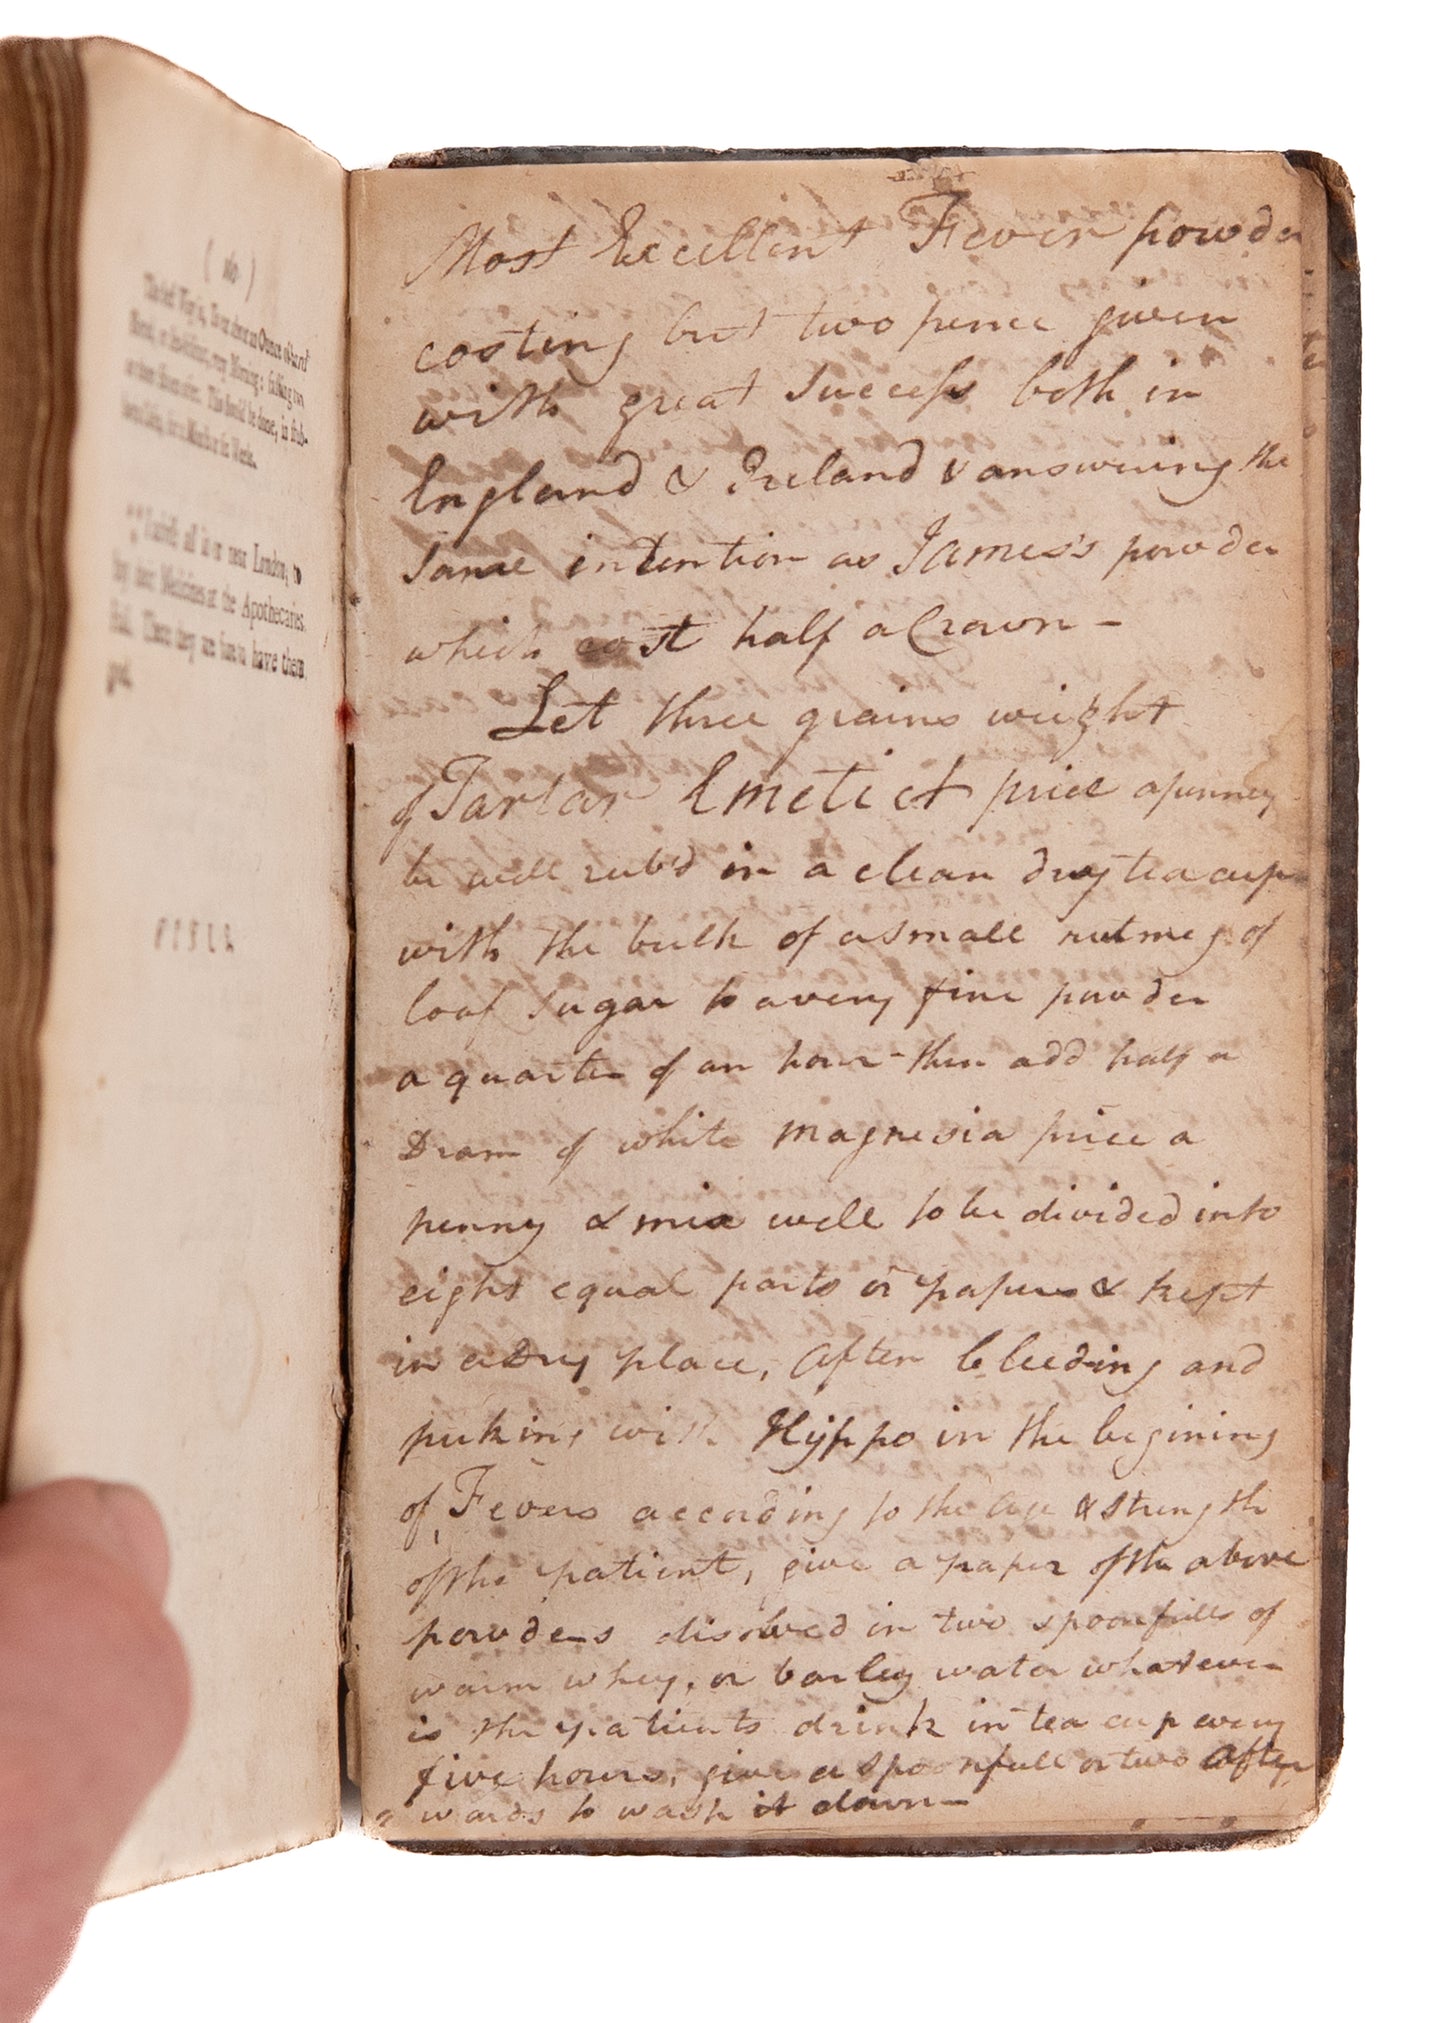 The best Way is, To
Blood, or
( 160 )
every Morning:
or more
This should be done, in stub-
born Cases, for a Month or six Weeks.
I advise all in or near London, to
buy their Medicines at the Apothecaries.
Hall. There they are sure to have them
good.
FINIS.
Most Excellent Fever powder
costing but two pence given
with great Success both in
England & Ireland & answering the
Same intention as James's powder
which cost half a Crown -
Let three grains weight
of Tartar Emetick price a penney
be well rub'd in a clean dry tea cup
with the bulk of a small nutmeg of
loaf Sugar to a very fine powder
a quarter of an hour - then add half a
Dram of white magnesia price a
penny & mix well to be divided into
eight equal parts or papers & kept
in a Dry place, After bleeding and
puking with Hyppo in the begining
of Fevers according to the age & strength
of the patient, give a paper of the above
powders disolved in two spoonfulls of
warm whey, or barley water whatever
is the patients drink in tea cup every
five hours, give a spoonfull or two After
wards to wash it down -